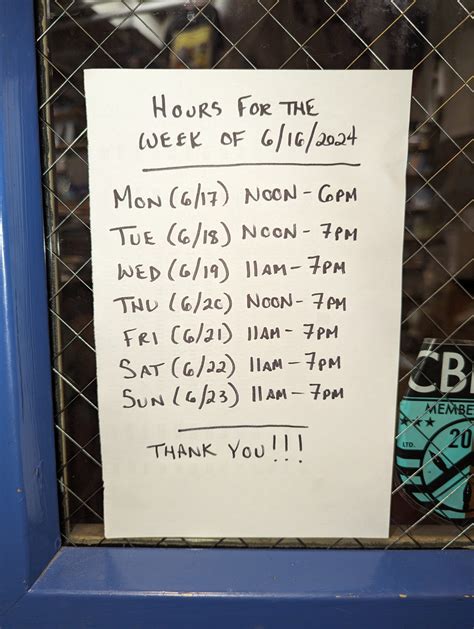 HOURS FOR THE
WEEK OF 6/16/2024
MON (6/17) NOON - 6PM
TUE (6/18) NOON - 7PM
WED (6/19) 11AM - 7PM
THU (6/20) NOON - 7PM
FRI (6/21) 11AM - 7PM
SAT (6/22) 11AM - 7PM
SUN (6/23) 11AM - 7PM
THANK YOU!!!
MEMBE
LTD.
20